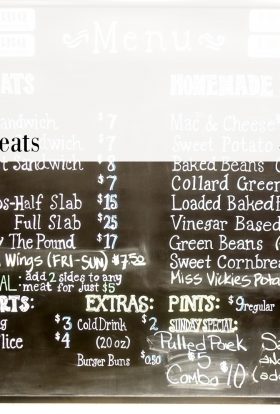 Menu
EATS
HOMEMADE
eats
andwich $7
Mac & Cheese
ndwich $7
Sweet Potato
t Sandwich $8
Baked Beans
$7
Collard Green
s-Half Slab $15
Loaded Baked
Full Slab $25
Vinegar Based
y The Pound $17
Green Beans
Wings (FRI-SUN) $7.50
Sweet Cornbrea
AL: add 2 sides to any
meat for just $5
Miss Vickies Pota
RTS:
EXTRAS:
PINTS: $9 regular
g $3
Cold Drink $2
SUNDAY SPECIAL:
lice $4
(20oz)
Pulled Pork
Burger Buns $0.50
$5
Combo $10